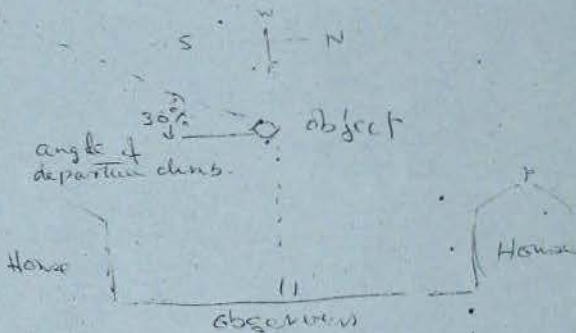 W
S N
30%
object
angle of
departure climb.
House
House
observers